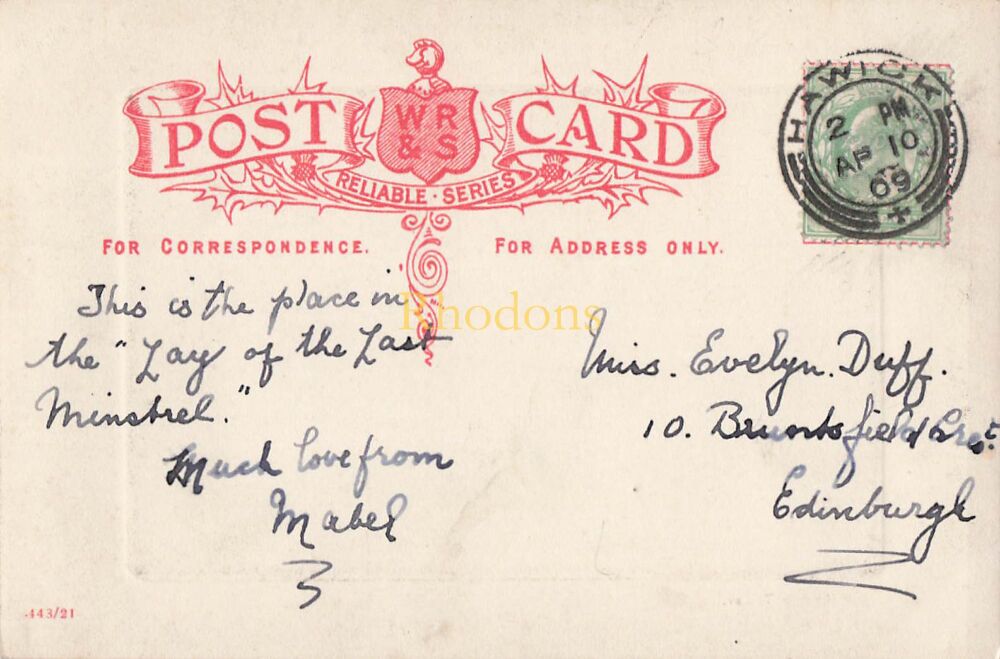 POST CARD
WR
& S
RELIABLE · SERIES
FOR CORRESPONDENCE.
FOR ADDRESS ONLY.
HAWICK
2 PM
AP 10
09
This is the place in
the "Lay of the Last
Minstrel."
Much love from
Mabel
Rhodons
Miss. Evelyn. Duff.
10. Bruntsfield Crest.
Edinburgh
443/21